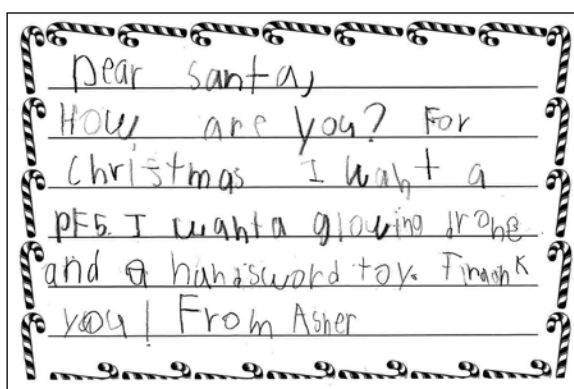 Dear Santa,
How are you? For
Christmas I want a
PF5. I want a glowing drone
and a handsword toy. Thank
you! From Asher